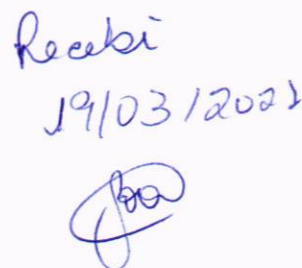 Recebi
19/03/2021